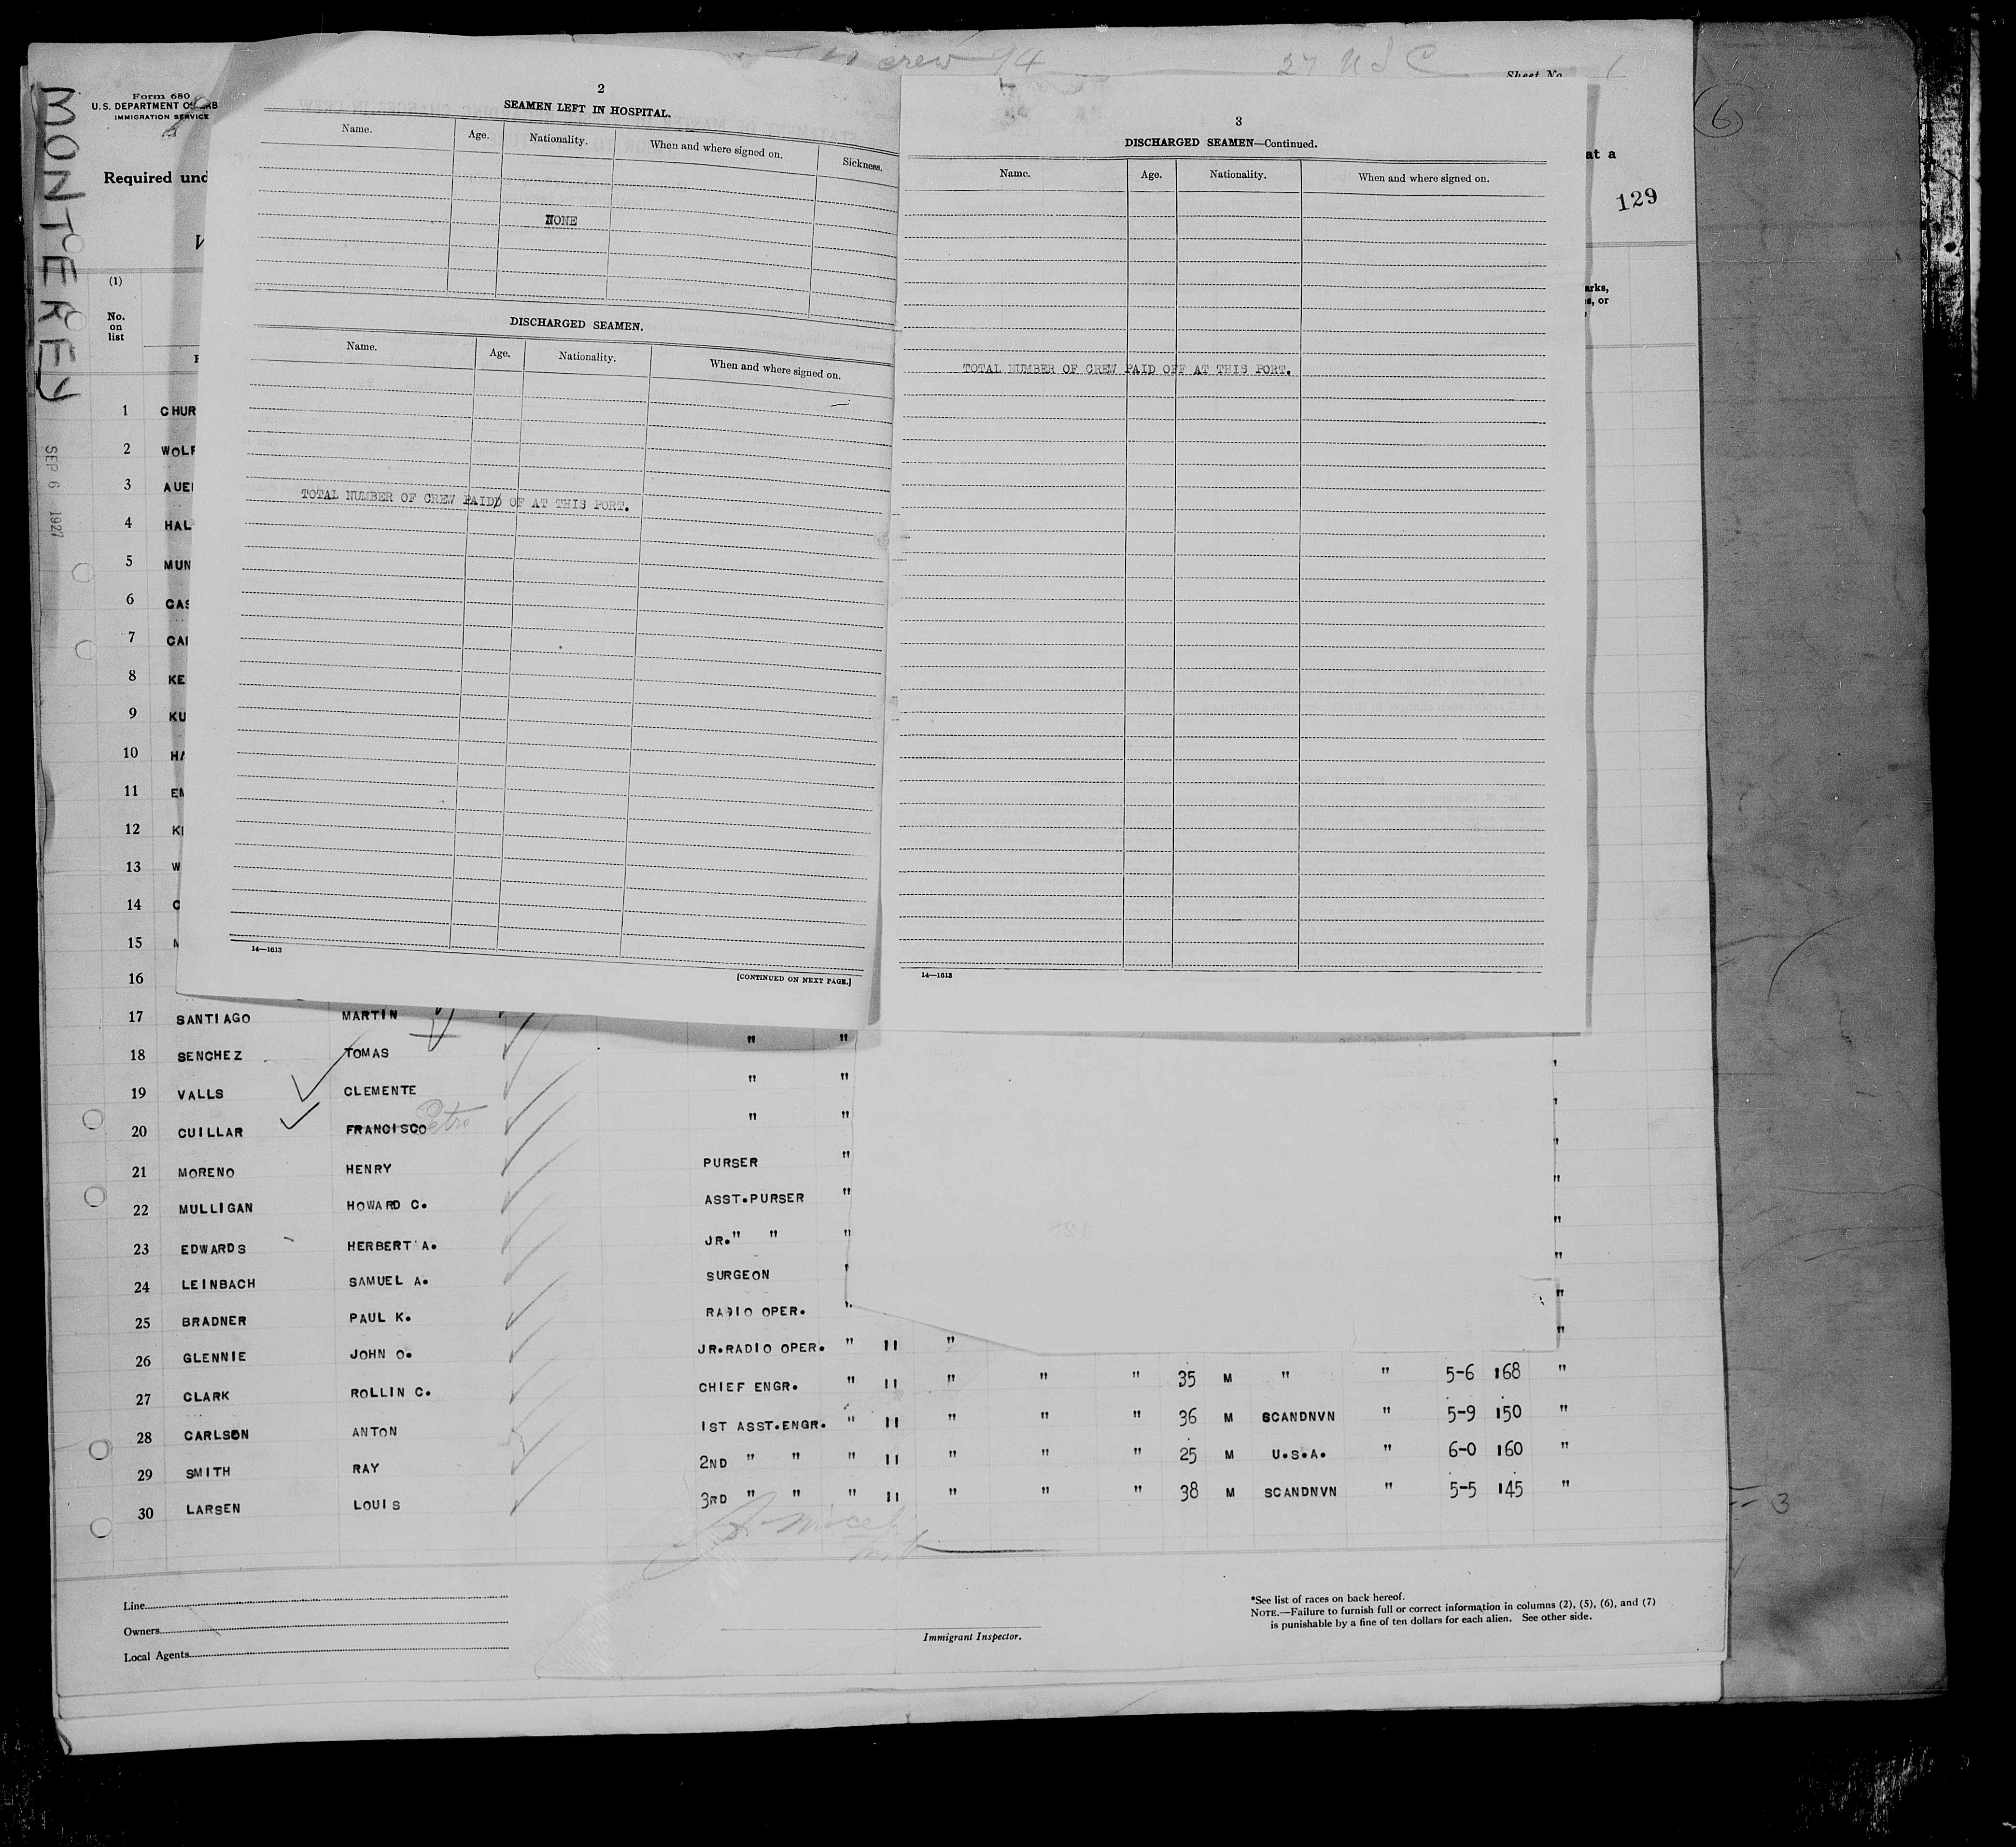 crew 94
27 U S C
Sheet No. 1
6
MONTEREY
SEP 6 1927
Form 680
U.S. DEPARTMENT OF LAB
IMMIGRATION SERVICE
Required und
at a
129
(1)
No.
on
list
arks,
s, or
2
SEAMEN LEFT IN HOSPITAL.
Name. Age. Nationality. When and where signed on. Sickness.
NONE
DISCHARGED SEAMEN.
Name. Age. Nationality. When and where signed on.
TOTAL NUMBER OF CREW PAID OF AT THIS PORT.
14—1613
[CONTINUED ON NEXT PAGE.]
3
DISCHARGED SEAMEN—Continued.
Name. Age. Nationality. When and where signed on.
TOTAL NUMBER OF CREW PAID OFF AT THIS PORT.
14—1613
1 CHUR
2 WOLF
3 AUE
4 HAL
5 MUN
6 CAS
7 CA
8 KE
9 KU
10 HA
11 EM
12 K
13 W
14 C
15 M
16
17 SANTIAGO MARTIN
18 SENCHEZ TOMAS " "
19 VALLS CLEMENTE " " "
20 CUILLAR FRANCISCO Petro " " "
21 MORENO HENRY PURSER " "
22 MULLIGAN HOWARD C. ASST.PURSER " "
23 EDWARDS HERBERT A. JR." " " "
24 LEINBACH SAMUEL A. SURGEON " "
25 BRADNER PAUL K. RADIO OPER. " "
26 GLENNIE JOHN O. JR.RADIO OPER. " 11 " "
27 CLARK ROLLIN C. CHIEF ENGR. " 11 " " " 35 M " " 5-6 168 "
28 CARLSON ANTON 1ST ASST.ENGR. " 11 " " " 36 M SCANDNVN " 5-9 150 "
29 SMITH RAY 2ND " " " 11 " " " 25 M U.S.A. " 6-0 160 "
30 LARSEN LOUIS 3RD " " " 11 " " " 38 M SCANDNVN " 5-5 145 "
3
Line
Owners
Local Agents
Immigrant Inspector.
*See list of races on back hereof.
NOTE.—Failure to furnish full or correct information in columns (2), (5), (6), and (7)
is punishable by a fine of ten dollars for each alien. See other side.